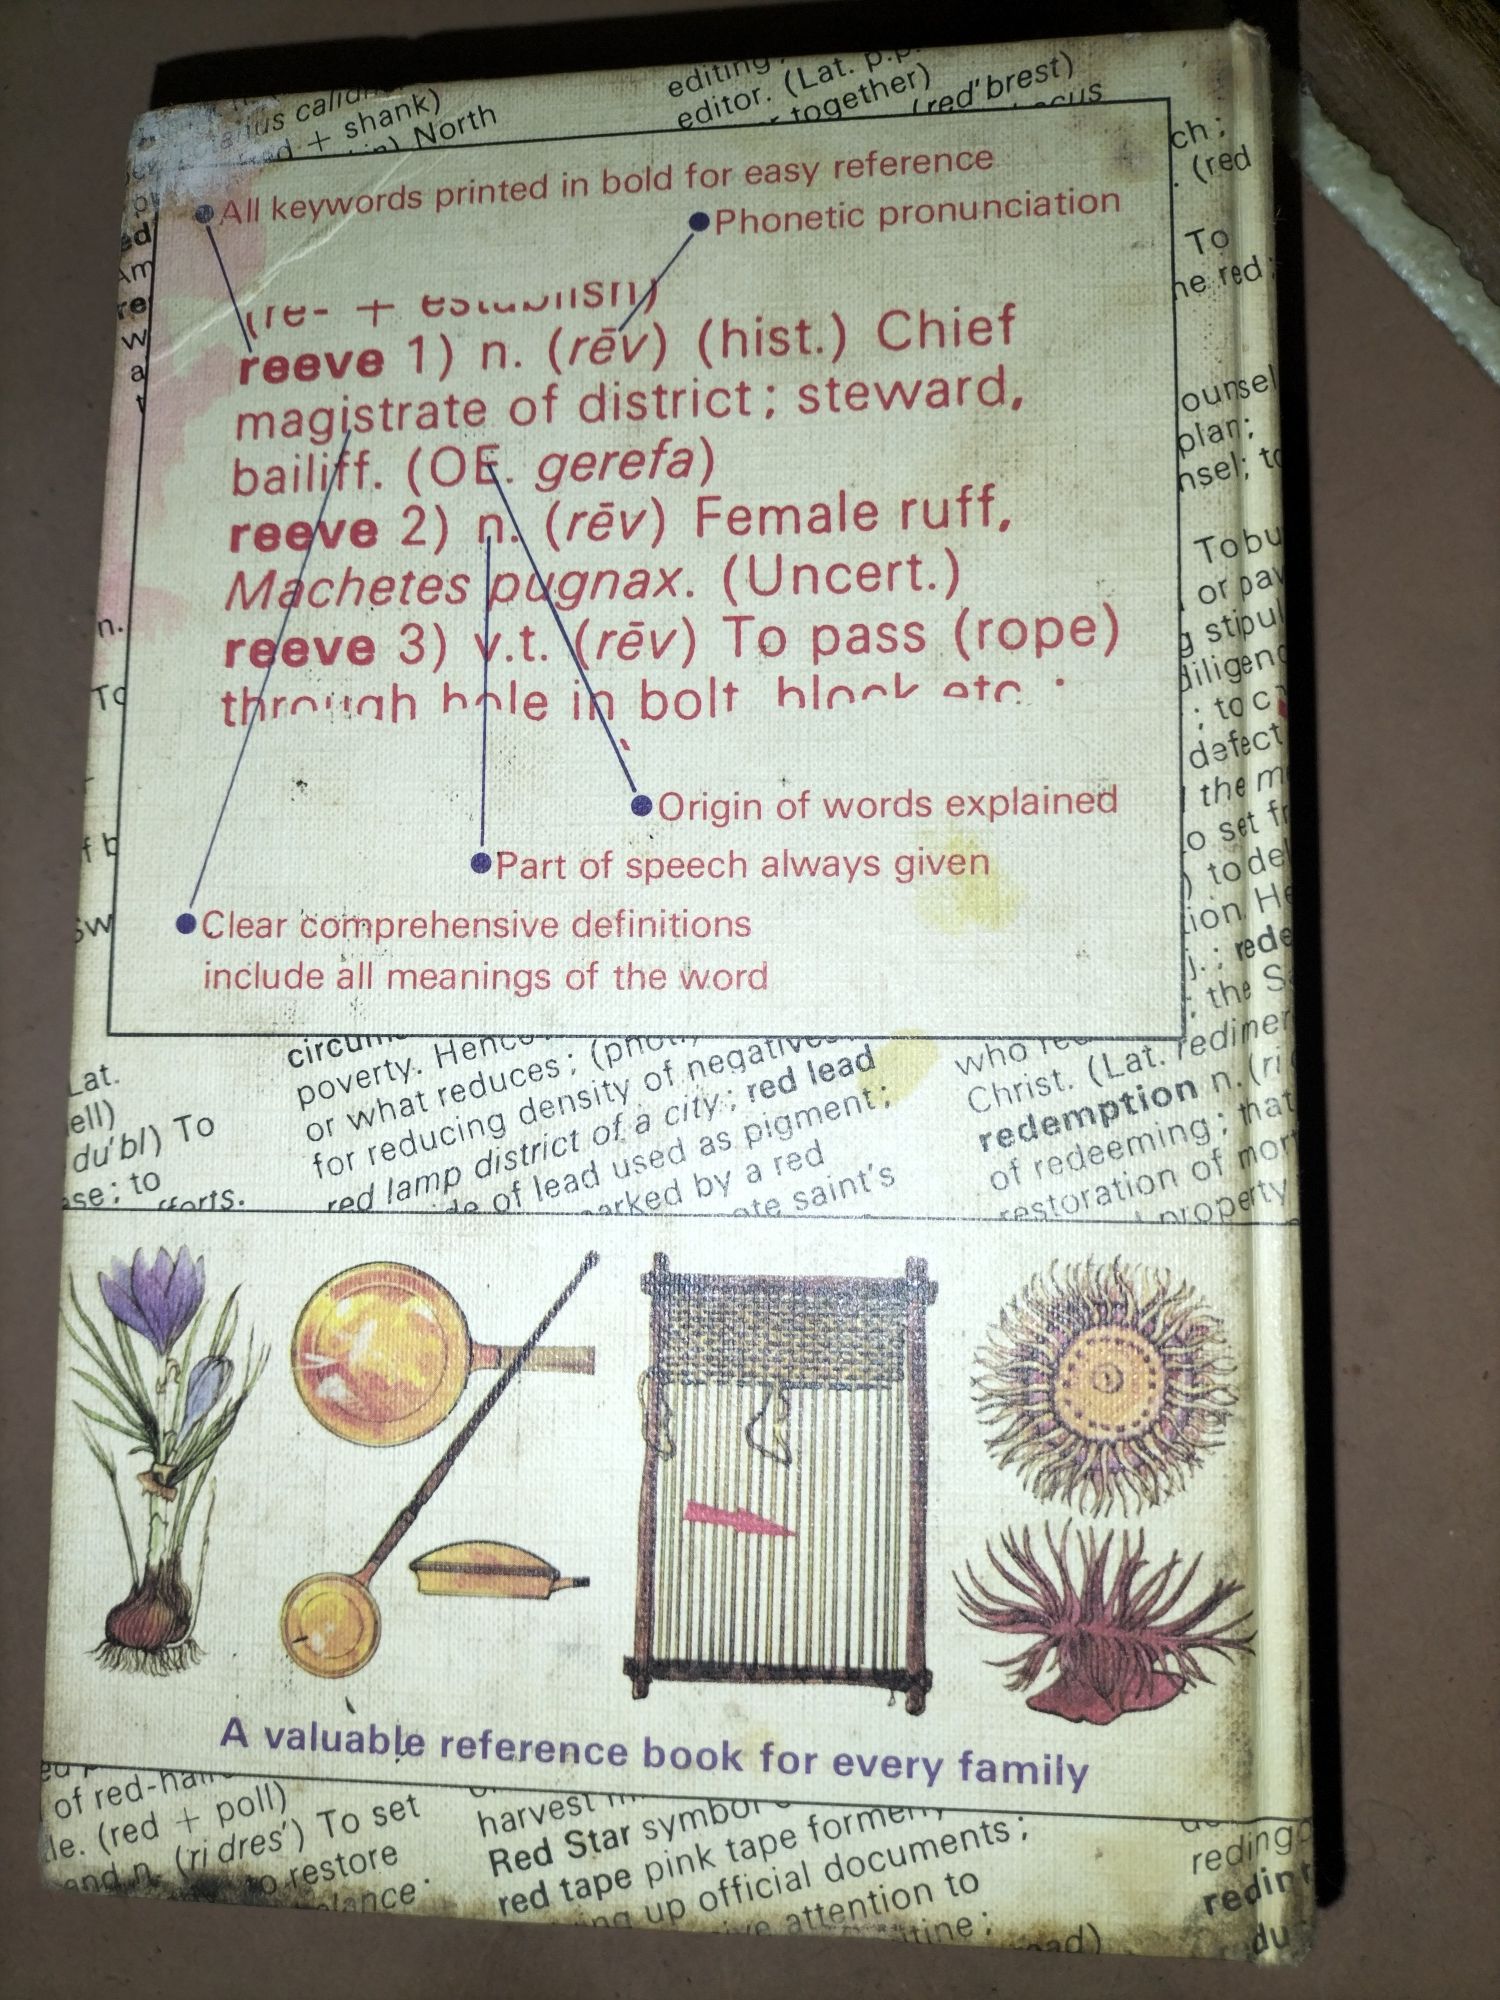 editing
editor. (Lat. p.p.
together)
(red'brest)
+ shank)
North
ch;
. (red
To
he red
All keywords printed in bold for easy reference
Phonetic pronunciation
(re- + establish)
reeve 1) n. (rēv) (hist.) Chief
magistrate of district; steward,
bailiff. (OE. gerefa)
reeve 2) n. (rēv) Female ruff,
Machetes pugnax. (Uncert.)
reeve 3) v.t. (rēv) To pass (rope)
through hole in bolt, block etc.
Origin of words explained
Part of speech always given
Clear comprehensive definitions
include all meanings of the word
ounsel
plan;
nsel; to
To bu
or pav
g stipul
diligenc
; to c
defect
the m
o set fr
to del
ion. He
j.; rede
; the S
n.
Lat.
ell)
du'bl) To
ase; to
poverty. Hence
or what reduces; (phot.)
for reducing density of negatives
red lamp district of a city; red lead
of lead used as pigment;
arked by a red
ate saint's
Christ. (Lat. redimer
redemption n. (ri
of redeeming; that
restoration of mor
property
A valuable reference book for every family
of red-hair
le. (red + poll)
and n. (ri dres') To set
to restore
lance
harvest
Red Star symbol
red tape pink tape formerly
up official documents;
ive attention to
tine;
reding
redin
du